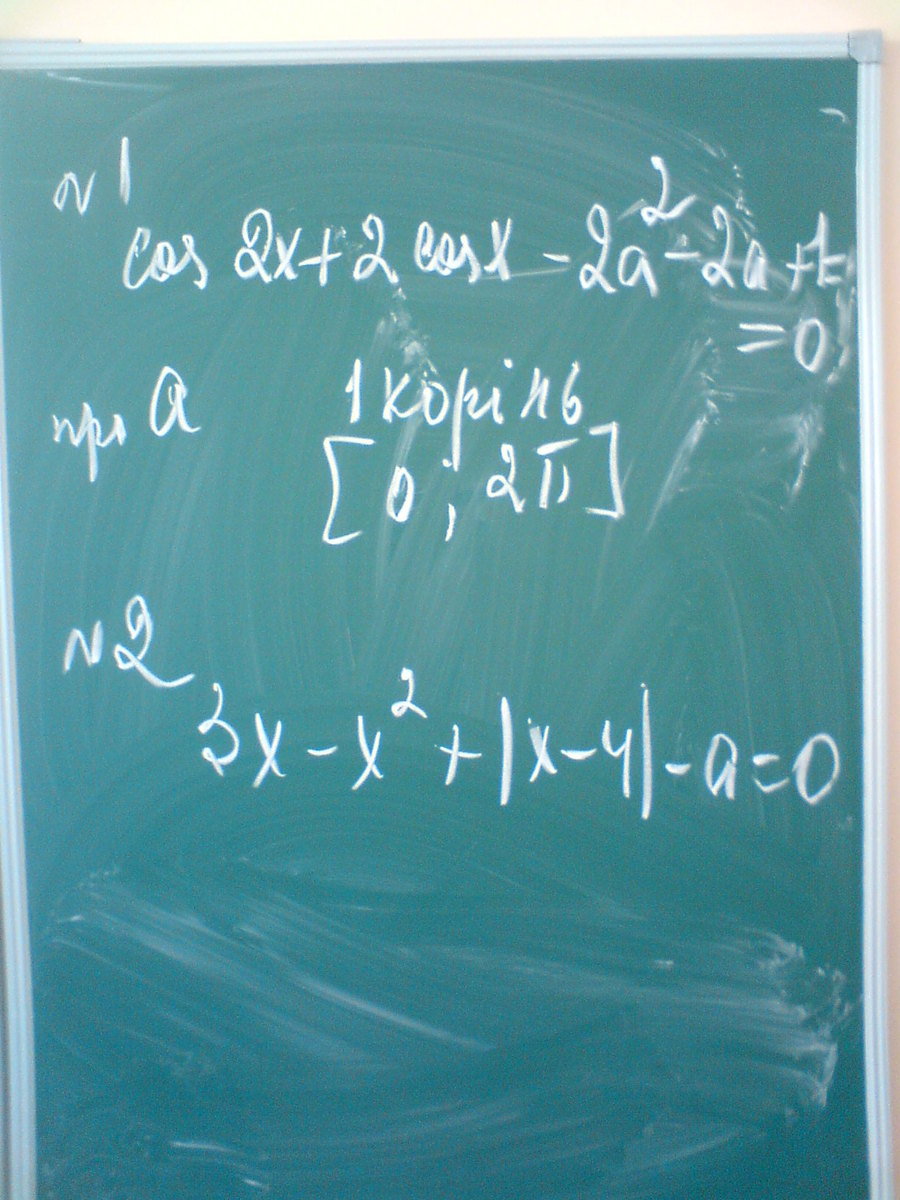 №1
cos 2x + 2 cos x - 2a² - 2a + 1
= 0
при a 1 корінь
[0; 2π]
№2
3x - x² + |x - 4| - a = 0